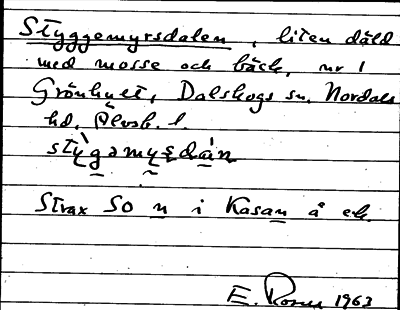 Styggemyrsdalen, liten däld
med mosse och bäck, nr 1
Grönhult, Dalskogs sn, Nordals
hd, Älvsb. l.
stỳgəmyṣdàn
Strax SO n i Kasan å ek.
E. Rosen 1963